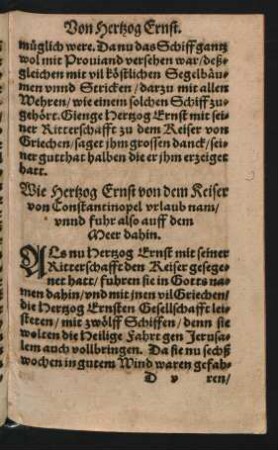 Von Hertzog Ernst.
müglich were. Da nu das Schiff gantz
wol mit Prouiand versehen war/ deß-
gleichen mit vil köstlichen Segelbäu-
men vnnd Stricken/ darzu mit allen
Wehren/ wie einem solchen Schiff zu-
gehört. Gienge Hertzog Ernst mit sei-
ner Ritterschafft zu dem Keiser von
Griechen/ saget jhm grossen danck/ sei-
ner gutthat halben die er jhm erzeiget
hatt.
Wie Hertzog Ernst von dem Keiser
von Constantinopel vrlaub nam/
vnnd fuhr also auff dem
Meer dahin.
ALs nu Hertzog Ernst mit seiner
Ritterschafft den Keiser gesege-
net hatt/ fuhren sie in Gotts na-
men dahin/ vnd mit jnen vil Griechen/
die Hertzog Ernsten Gesellschafft lei-
steten/ mit zwölff Schiffen/ denn sie
wolten die Heilige Fahrt gen Jerusa-
lem auch vollbringen. Da sie nu sechß
wochen in gutem Wind waren gefah-
D v ren/